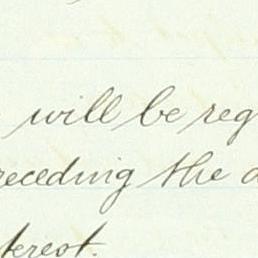 will be reg
receding the d
terest.